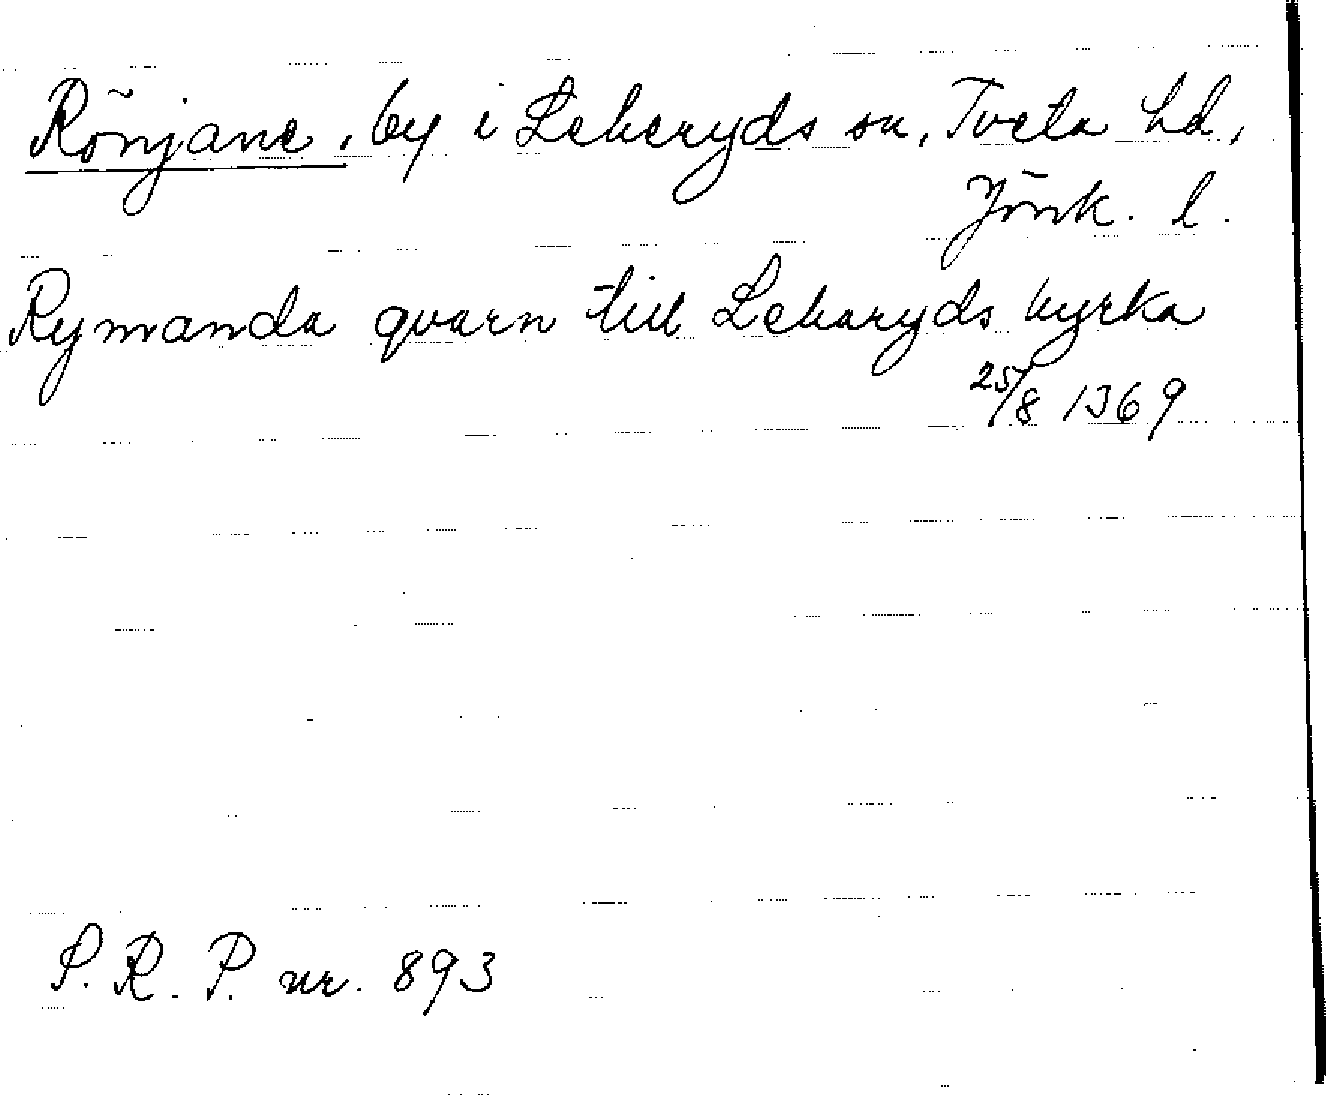 Rönjane, by i Lekeryds sn, Tveta hd,
Jönk. l.
Rymanda qvarn till Lekaryds kyrka
25/8 1369
S. R. P. nr. 893